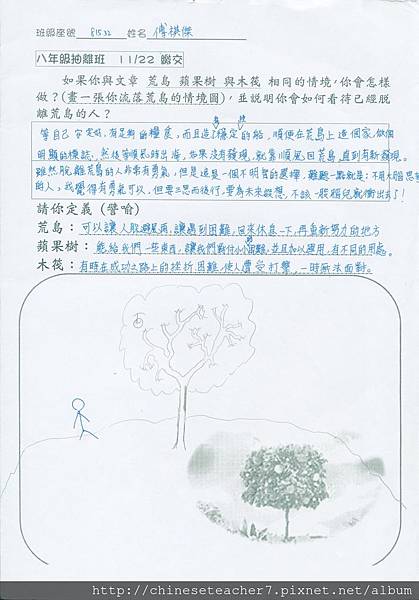 班級座號 81532 姓名 傅棋傑
八年級抽離班 11/22 繳交
如果你與文章 荒島 蘋果樹 與木筏 相同的情境，你會怎樣
做？(畫一張你流落荒島的情境圖)，並說明你會如何看待已經脫
離荒島的人？
等自己安定好，有足夠的糧食，而且造了穩定的船，順便在荒島上造個家，做個
明顯的標誌，然後等順風時出海，如果沒有發現，就靠順風回荒島，直到有新發現。
雖然脫離荒島的人非常有勇氣，但是這是一個不明智的選擇，難聽一點就是：不用大腦思考
的人，我覺得有勇氣可以，但要三思而後行，要為未來設想，不該一股腦兒就衝出去！
請你定義（譬喻）
荒島：可以讓人躲避風雨，讓遇到困難，回來休息一下，再重新努力的地方
蘋果樹：能給我們一些東西，讓我們對付小小困難，並且加以應用，有不同的用處。
木筏：有時在成功之路上的挫折困難，使人遭受打擊，一時無法面對。
http://chineseteacher7.pixnet.net/album